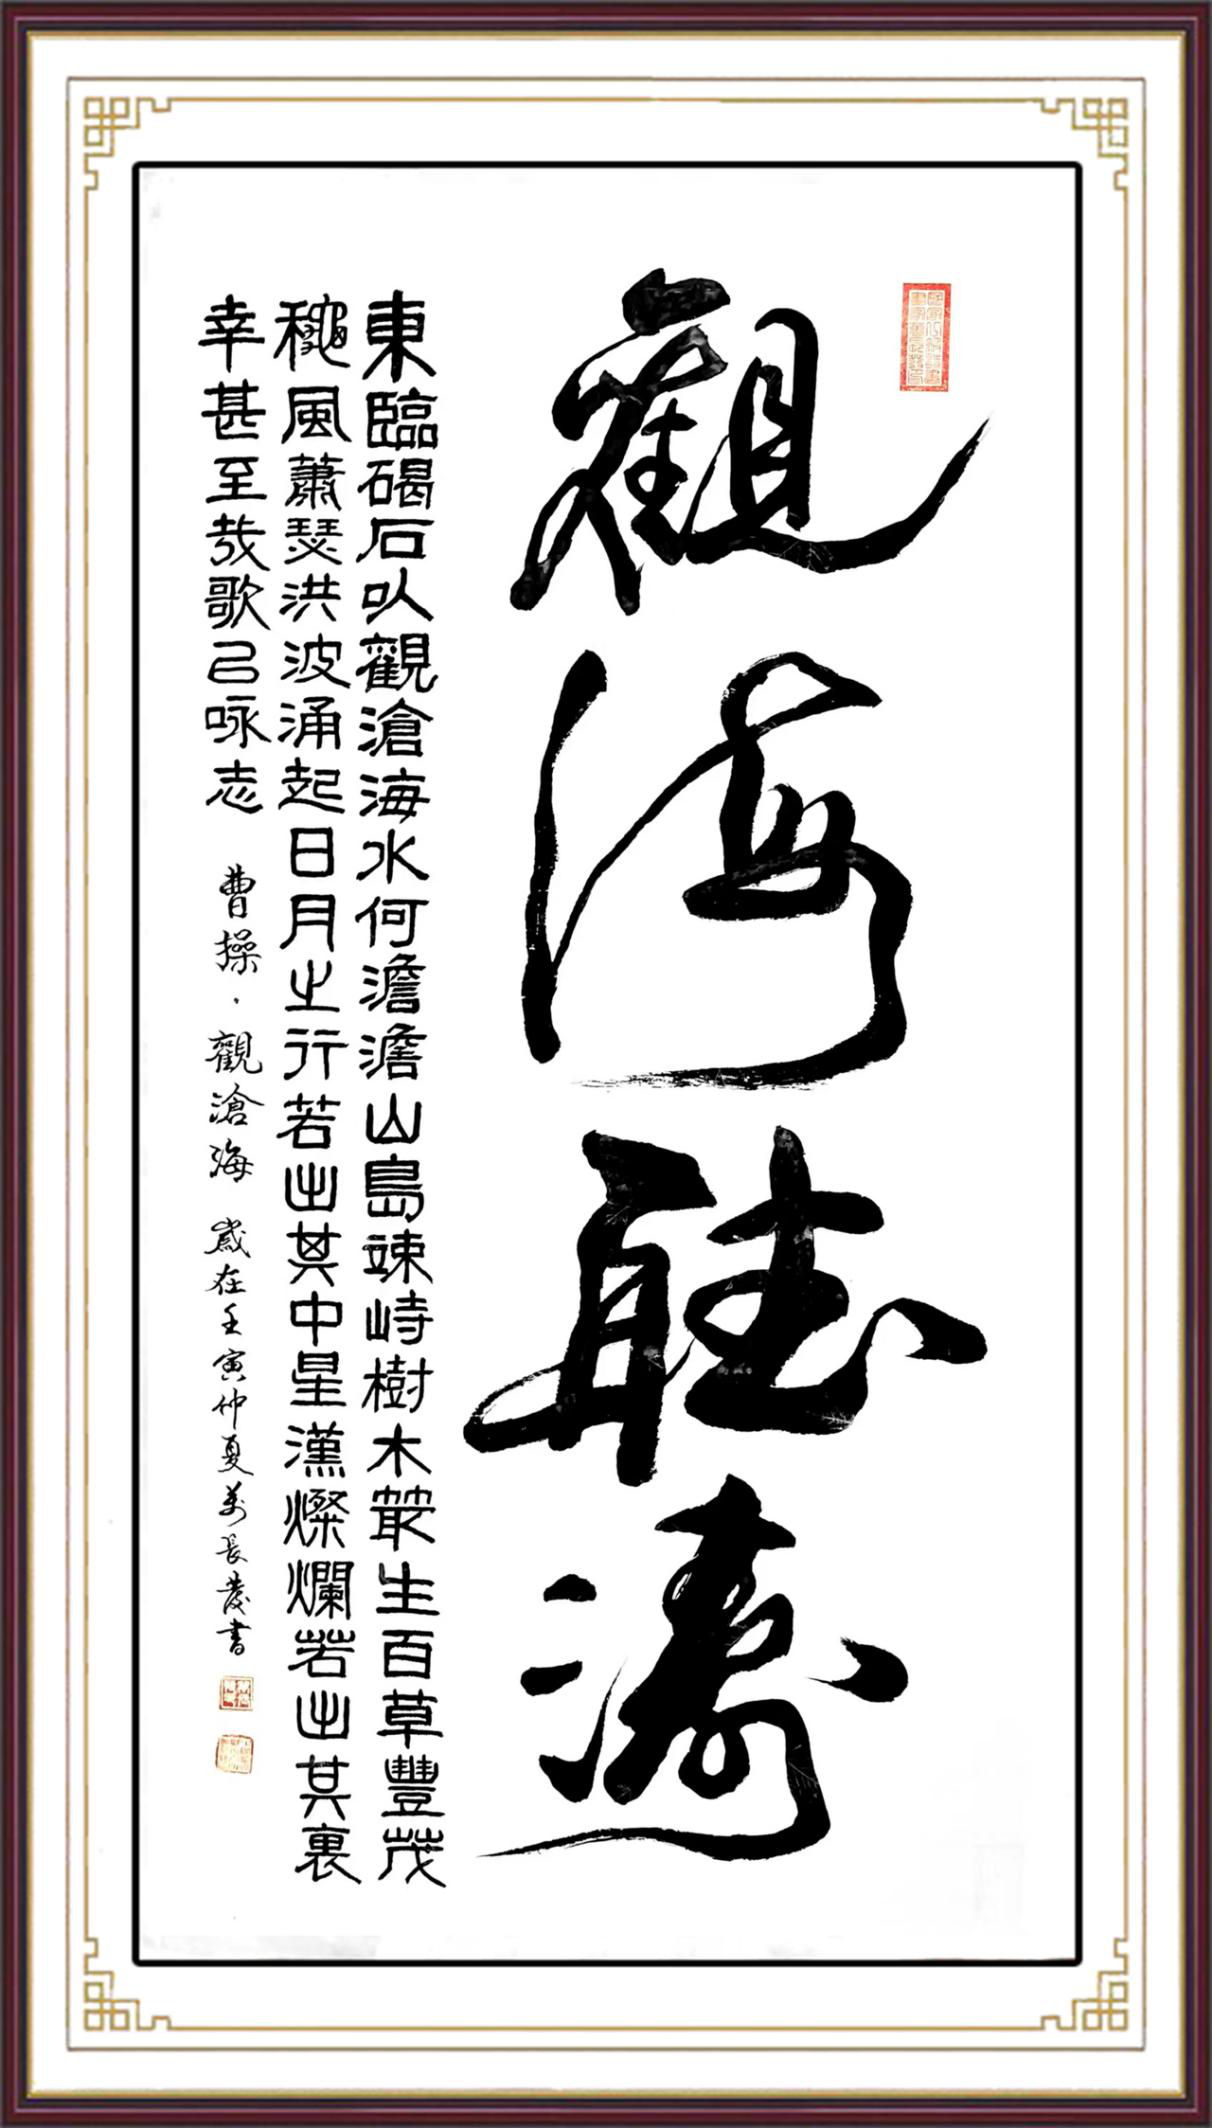 觀海聽濤
東臨碣石以觀滄海水何澹澹山島竦峙樹木叢生百草豐茂
龝風蕭瑟洪波涌起日月之行若出其中星漢燦爛若出其裏
幸甚至哉歌以咏志 曹操·觀滄海 歲在壬寅仲夏萬長發書